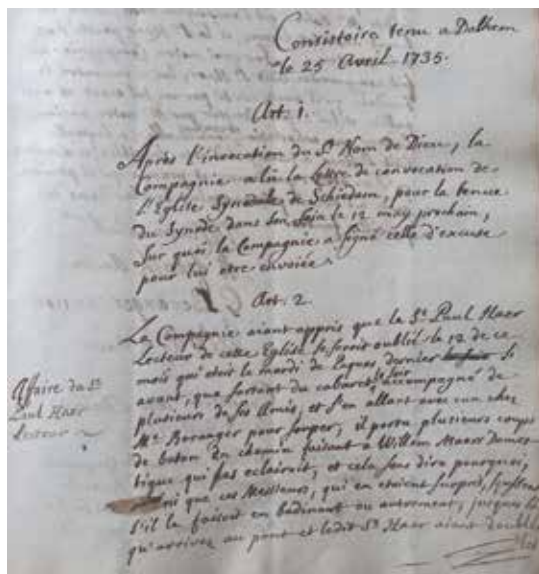 Consistoire tenu a Dalhem
le 25 Avril 1735.
Art: 1.
Après l'invocation du St Nom de Dieu, la
Compagnie a lu la Lettre de convocation de
l'Eglise Synodale de Schiedam, pour la tenue
du Synode dans son sein le 12 may prochain,
Sur quoi la Compagnie a signé celle d'excuse
pour lui etre envoiée
Art: 2.
La Compagnie aiant appris que le Sr Paul Haer
Lecteur de cette Eglise se seroit oublié le 12 de ce
mois qui etoit le mardi de Paques dernier si
avant, que sortant du cabaret le soir accompagné de
plusieurs de ses Amis, et s'en allant avec eux chez
Mr Beranger pour souper, il porta plusieurs coups
de baton en chemin faisant a Willem Maers domes-
tique qui les eclairoit, et cela sans dire pourquoi,
que ces Messieurs, qui en etoient surpris,
s'il le faisoit en badinant ou autrement, jusques là
qu'arrivez au pont et ledit Sr Haer aiant
Affaire du Sr
Paul Haer
Lecteur